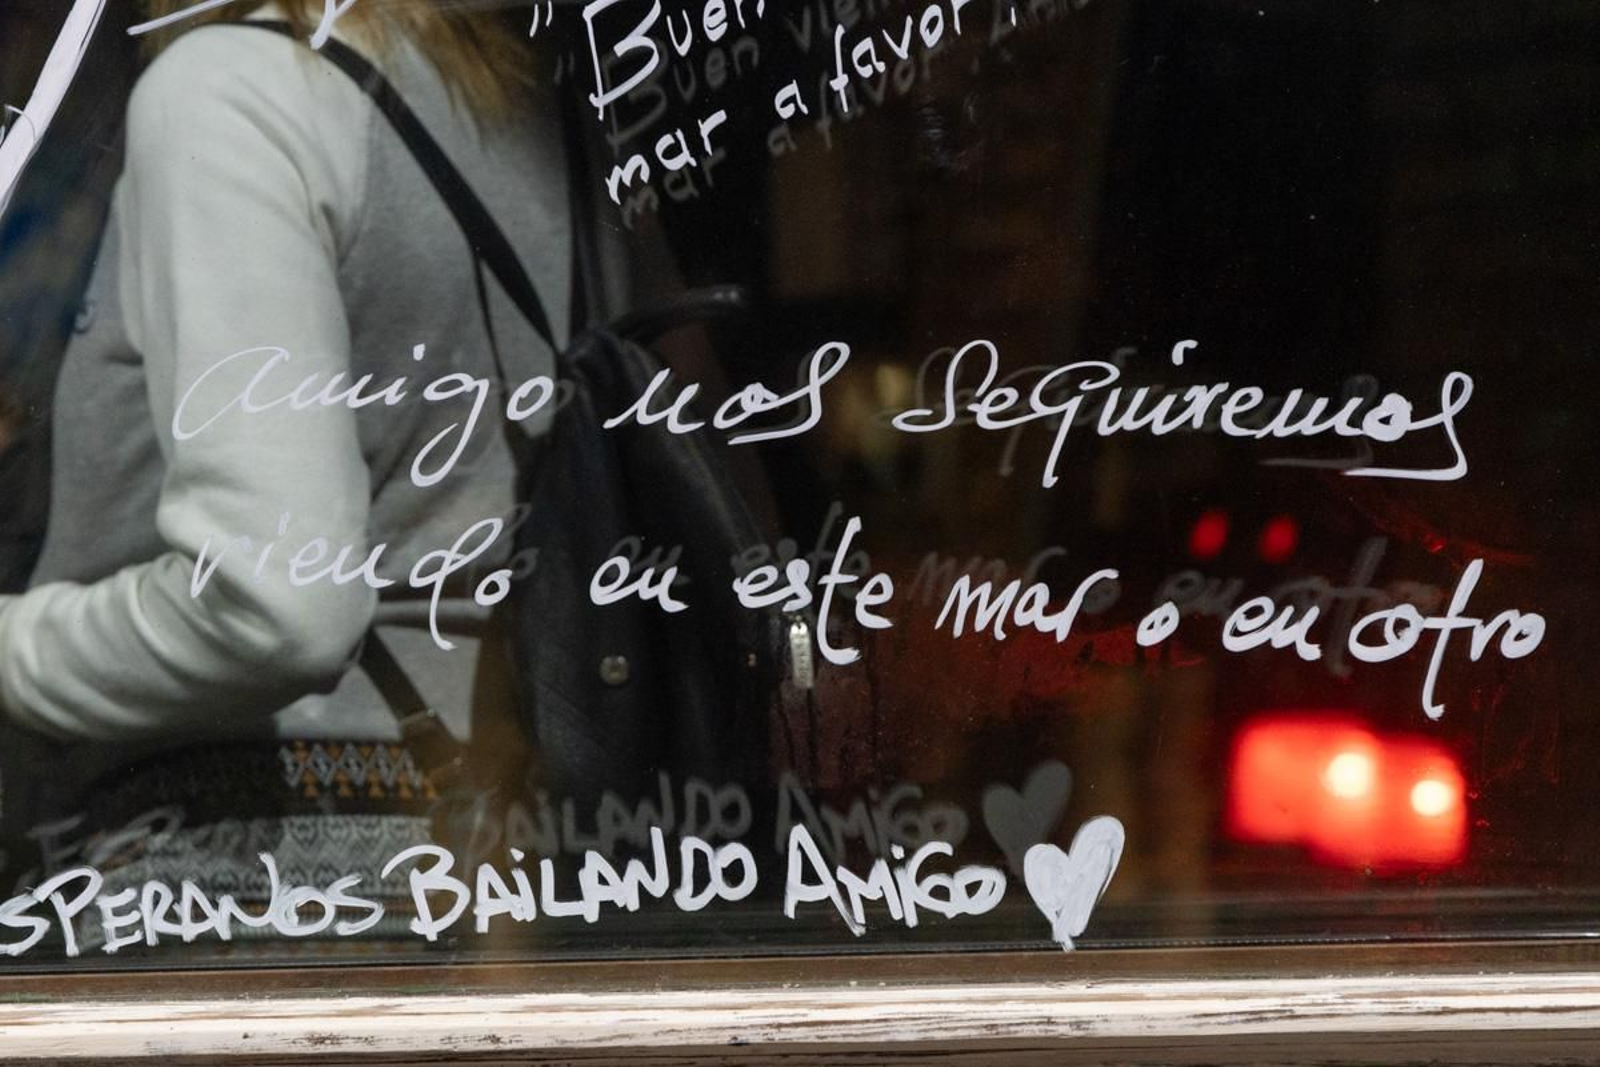 "Buen
mar a favor
amigo nos seguiremos
riendo en este mar o en otro
SPERANOS BAiLANDO AMiGO